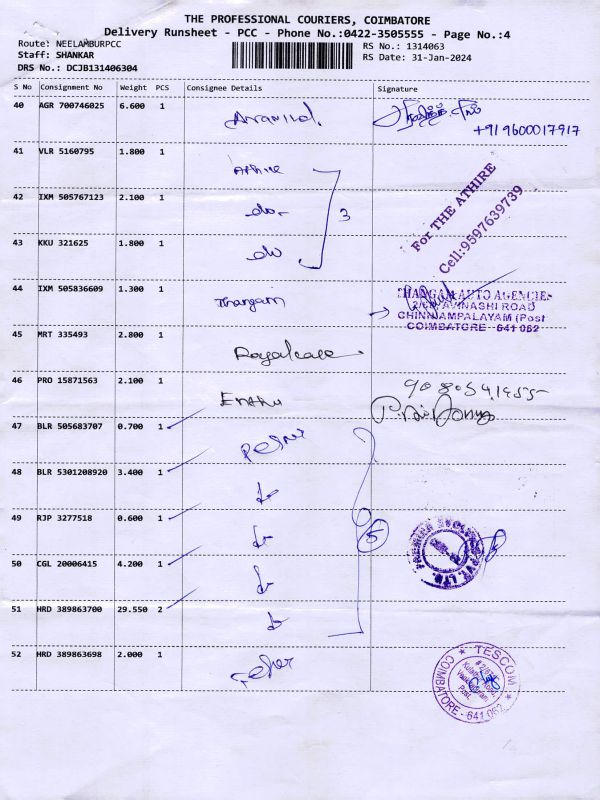 THE PROFESSIONAL COURIERS, COIMBATORE
Delivery Runsheet - PCC - Phone No.:0422-3505555 - Page No.:4
Route: NEELAMBURPCC
Staff: SHANKAR
DRS No.: DCJB131406304
RS No.: 1314063
RS Date: 31-Jan-2024
S No Consignment No Weight PCS Consignee Details Signature
40 AGR 700746025 6.600 1 Aravind
+91 9600017917
41 VLR 5160795 1.800 1 Athire
42 IXM 505767123 2.100 1 -do- 3
43 KKU 321625 1.800 1 do
For THE ATHIRE
Cell:9597639739
44 IXM 505836609 1.300 1 Thangam
THANGAM AUTO AGENCIES
AVINASHI ROAD
CHINNIAMPALAYAM (Post
COIMBATORE - 641 062
45 MRT 335493 2.800 1 Royalcare
46 PRO 15871563 2.100 1
47 BLR 505683707 0.700 1
48 BLR 5301208920 3.400 1
49 RJP 3277518 0.600 1 5
50 CGL 20006415 4.200 1
51 HRD 389863700 29.550 2
PREMIER PVT. LTD.
52 HRD 389863698 2.000 1
TESCOM
COIMBATORE - 641 062
Post.